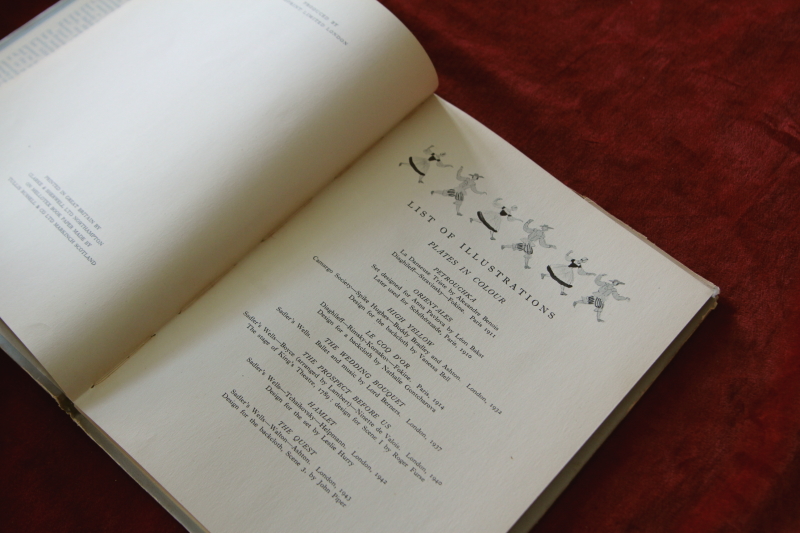 PRINTED BY
LIMITED LONDON
PRINTED IN GREAT BRITAIN BY
LTD NORTHAMPTON
BOOK PAPER MADE BY
& CO LTD SCOTLAND
LIST OF ILLUSTRATIONS
PLATES IN COLOUR
PETROUCHKA
La Danseuse Tziee by Alexandre Benois
Diaghileff—Stravinsky—Fokine. Paris 1911
ORIENTALES
Set designed for Anna Pavlova by Leon Bakst
Later used for Schéhérazade, Paris, 1910
HIGH YELLOW
Camargo Society—Spike Hughes—Buddy Bradley and Ashton. London, 1932
Design for the backcloth by Vanessa Bell
LE COQ D'OR
Diaghileff—Rimsky-Korsakov—Fokine. Paris, 1914
Design for a backcloth by Nathalie Gontcharova
THE WEDDING BOUQUET
Sadler's Wells. Ballet and music by Lord Berners. London, 1937
THE PROSPECT BEFORE US
Sadler's Wells—Boyce (arranged by Lambert)—Ninette de Valois. London, 1940
The stage of King's Theatre, 1789; design for Scene 1 by Roger Furse
HAMLET
Sadler's Wells—Tchaikovsky—Helpmann. London, 1942
Design for the set by Leslie Hurry
THE QUEST
Sadler's Wells—Walton—Ashton. London, 1943
Design for the backcloth, Scene 3, by John Piper